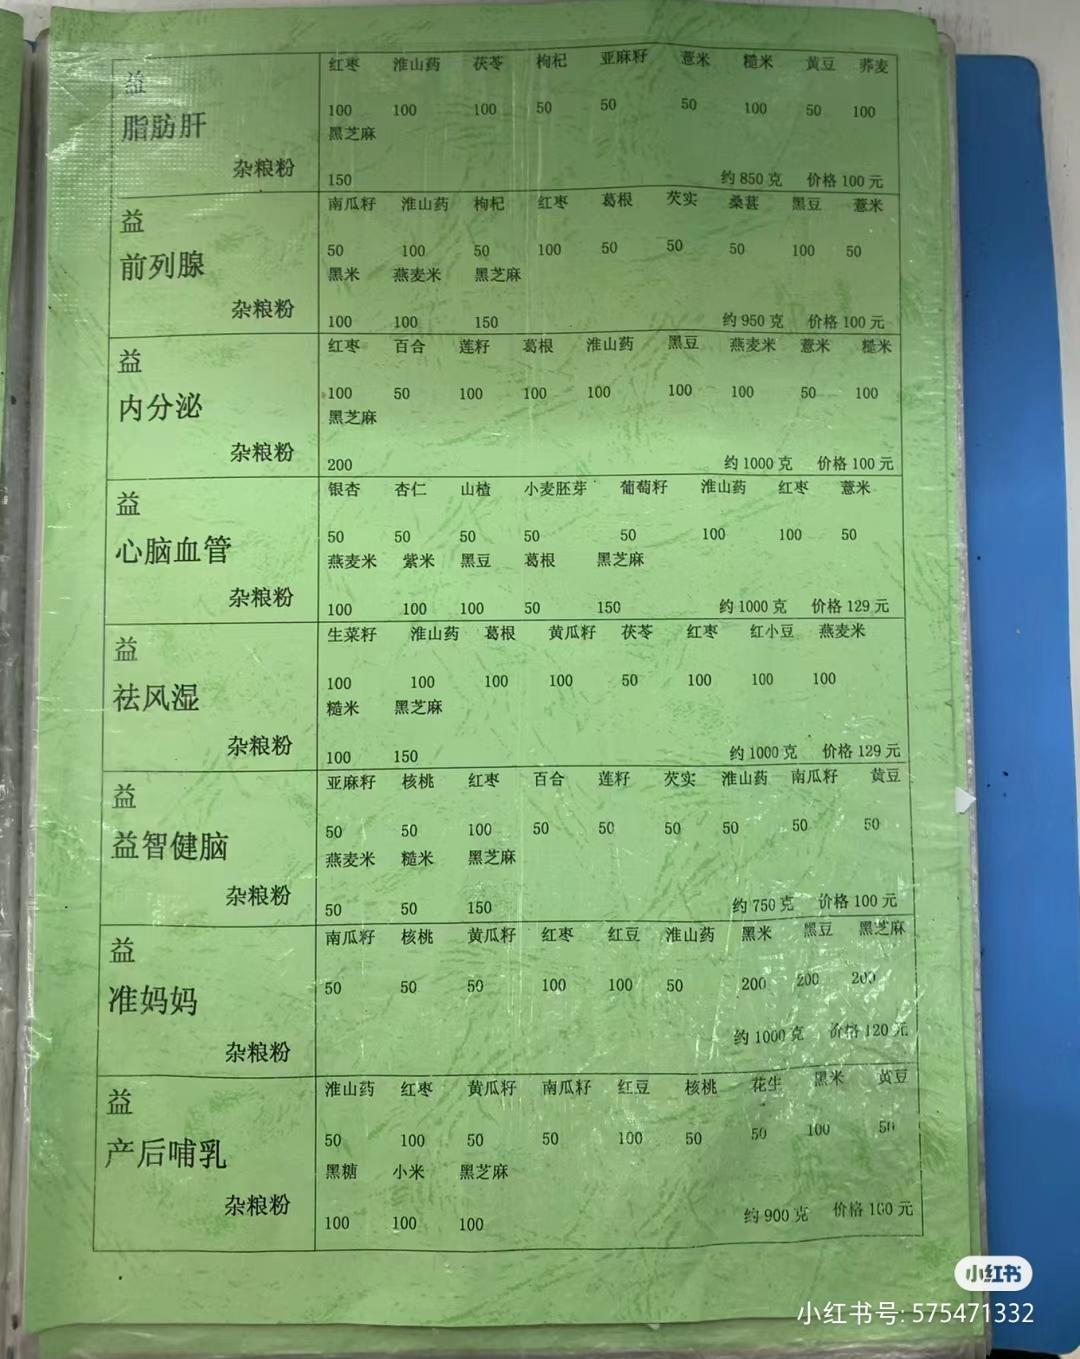 益
脂肪肝
杂粮粉
红枣 淮山药 茯苓 枸杞 亚麻籽 薏米 糙米 黄豆 荞麦
100 100 100 50 50 50 100 50 100
黑芝麻
150 约850克 价格100元
益
前列腺
杂粮粉
南瓜籽 淮山药 枸杞 红枣 葛根 芡实 桑葚 黑豆 薏米
50 100 50 100 50 50 50 100 50
黑米 燕麦米 黑芝麻
100 100 150 约950克 价格100元
益
内分泌
杂粮粉
红枣 百合 莲籽 葛根 淮山药 黑豆 燕麦米 薏米 糙米
100 50 100 100 100 100 100 50 100
黑芝麻
200 约1000克 价格100元
益
心脑血管
杂粮粉
银杏 杏仁 山楂 小麦胚芽 葡萄籽 淮山药 红枣 薏米
50 50 50 50 50 100 100 50
燕麦米 紫米 黑豆 葛根 黑芝麻
100 100 100 50 150 约1000克 价格129元
益
祛风湿
杂粮粉
生菜籽 淮山药 葛根 黄瓜籽 茯苓 红枣 红小豆 燕麦米
100 100 100 100 50 100 100 100
糙米 黑芝麻
100 150 约1000克 价格129元
益
益智健脑
杂粮粉
亚麻籽 核桃 红枣 百合 莲籽 芡实 淮山药 南瓜籽 黄豆
50 50 100 50 50 50 50 50 50
燕麦米 糙米 黑芝麻
50 50 150 约750克 价格100元
益
准妈妈
杂粮粉
南瓜籽 核桃 黄瓜籽 红枣 红豆 淮山药 黑米 黑豆 黑芝麻
50 50 50 100 100 50 200 200 200
约1000克 价格120元
益
产后哺乳
杂粮粉
淮山药 红枣 黄瓜籽 南瓜籽 红豆 核桃 花生 黑米 黄豆
50 100 50 50 100 50 50 100 50
黑糖 小米 黑芝麻
100 100 100 约900克 价格100元
小红书
小红书号: 575471332